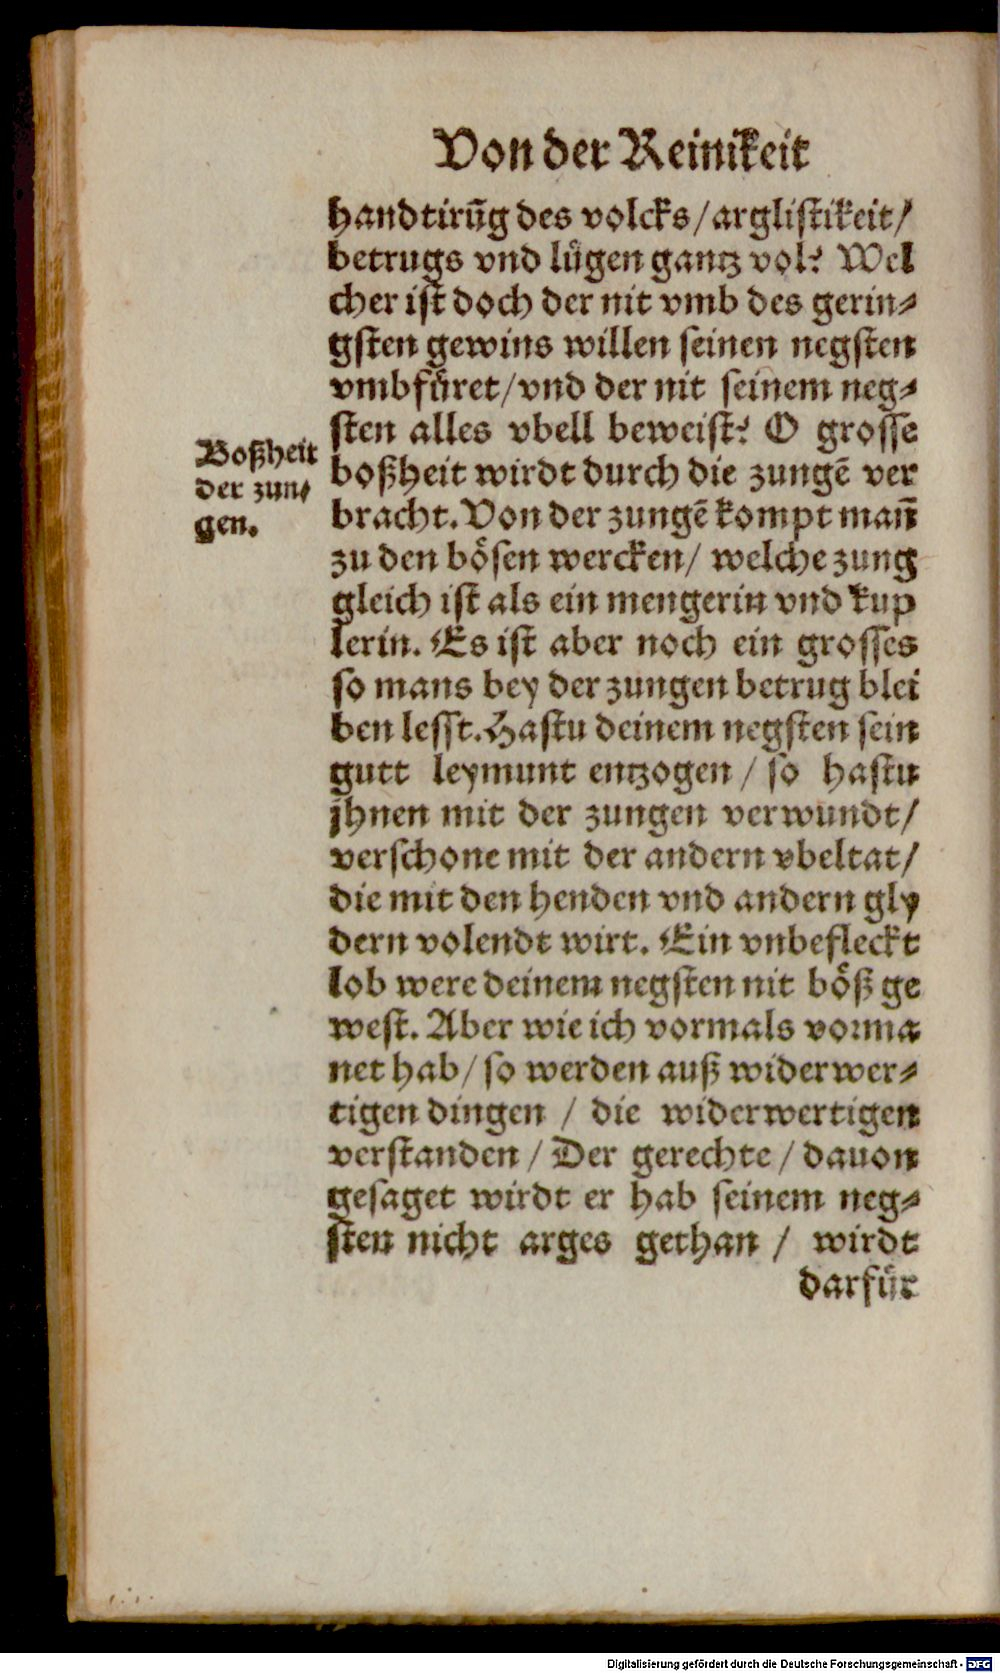 Von der Reinikeit
handtirũg des volcks / arglistikeit /
betrugs vnd lůgen gantz vol? Wel
cher ist doch der nit vmb des gerin⸗
gsten gewins willen seinen negsten
vmbfůret / vnd der nit seinem neg⸗
sten alles vbell beweist? O grosse
boßheit wirdt durch die zungẽ ver
bracht. Von der zungẽ kompt mañ
zu den bösen wercken / welche zung
gleich ist als ein mengerin vnd kup
lerin. Es ist aber noch ein grosses
so mans bey der zungen betrug blei
ben lesst. Hastu deinem negsten sein
gutt leymunt entzogen / so hastu
jhnen mit der zungen verwundt /
verschone mit der andern vbeltat /
die mit den henden vnd andern gly
dern volendt wirt. Ein vnbefleckt
lob were deinem negsten nit böß ge
west. Aber wie ich vormals vorma
net hab / so werden auß widerwer⸗
tigen dingen / die widerwertigen
verstanden / Der gerechte / dauon
gesaget wirdt er hab seinem neg⸗
sten nicht arges gethan / wirdt
darfür
Boßheit
der zun⸗
gen.
Digitalisierung gefördert durch die Deutsche Forschungsgemeinschaft - DFG